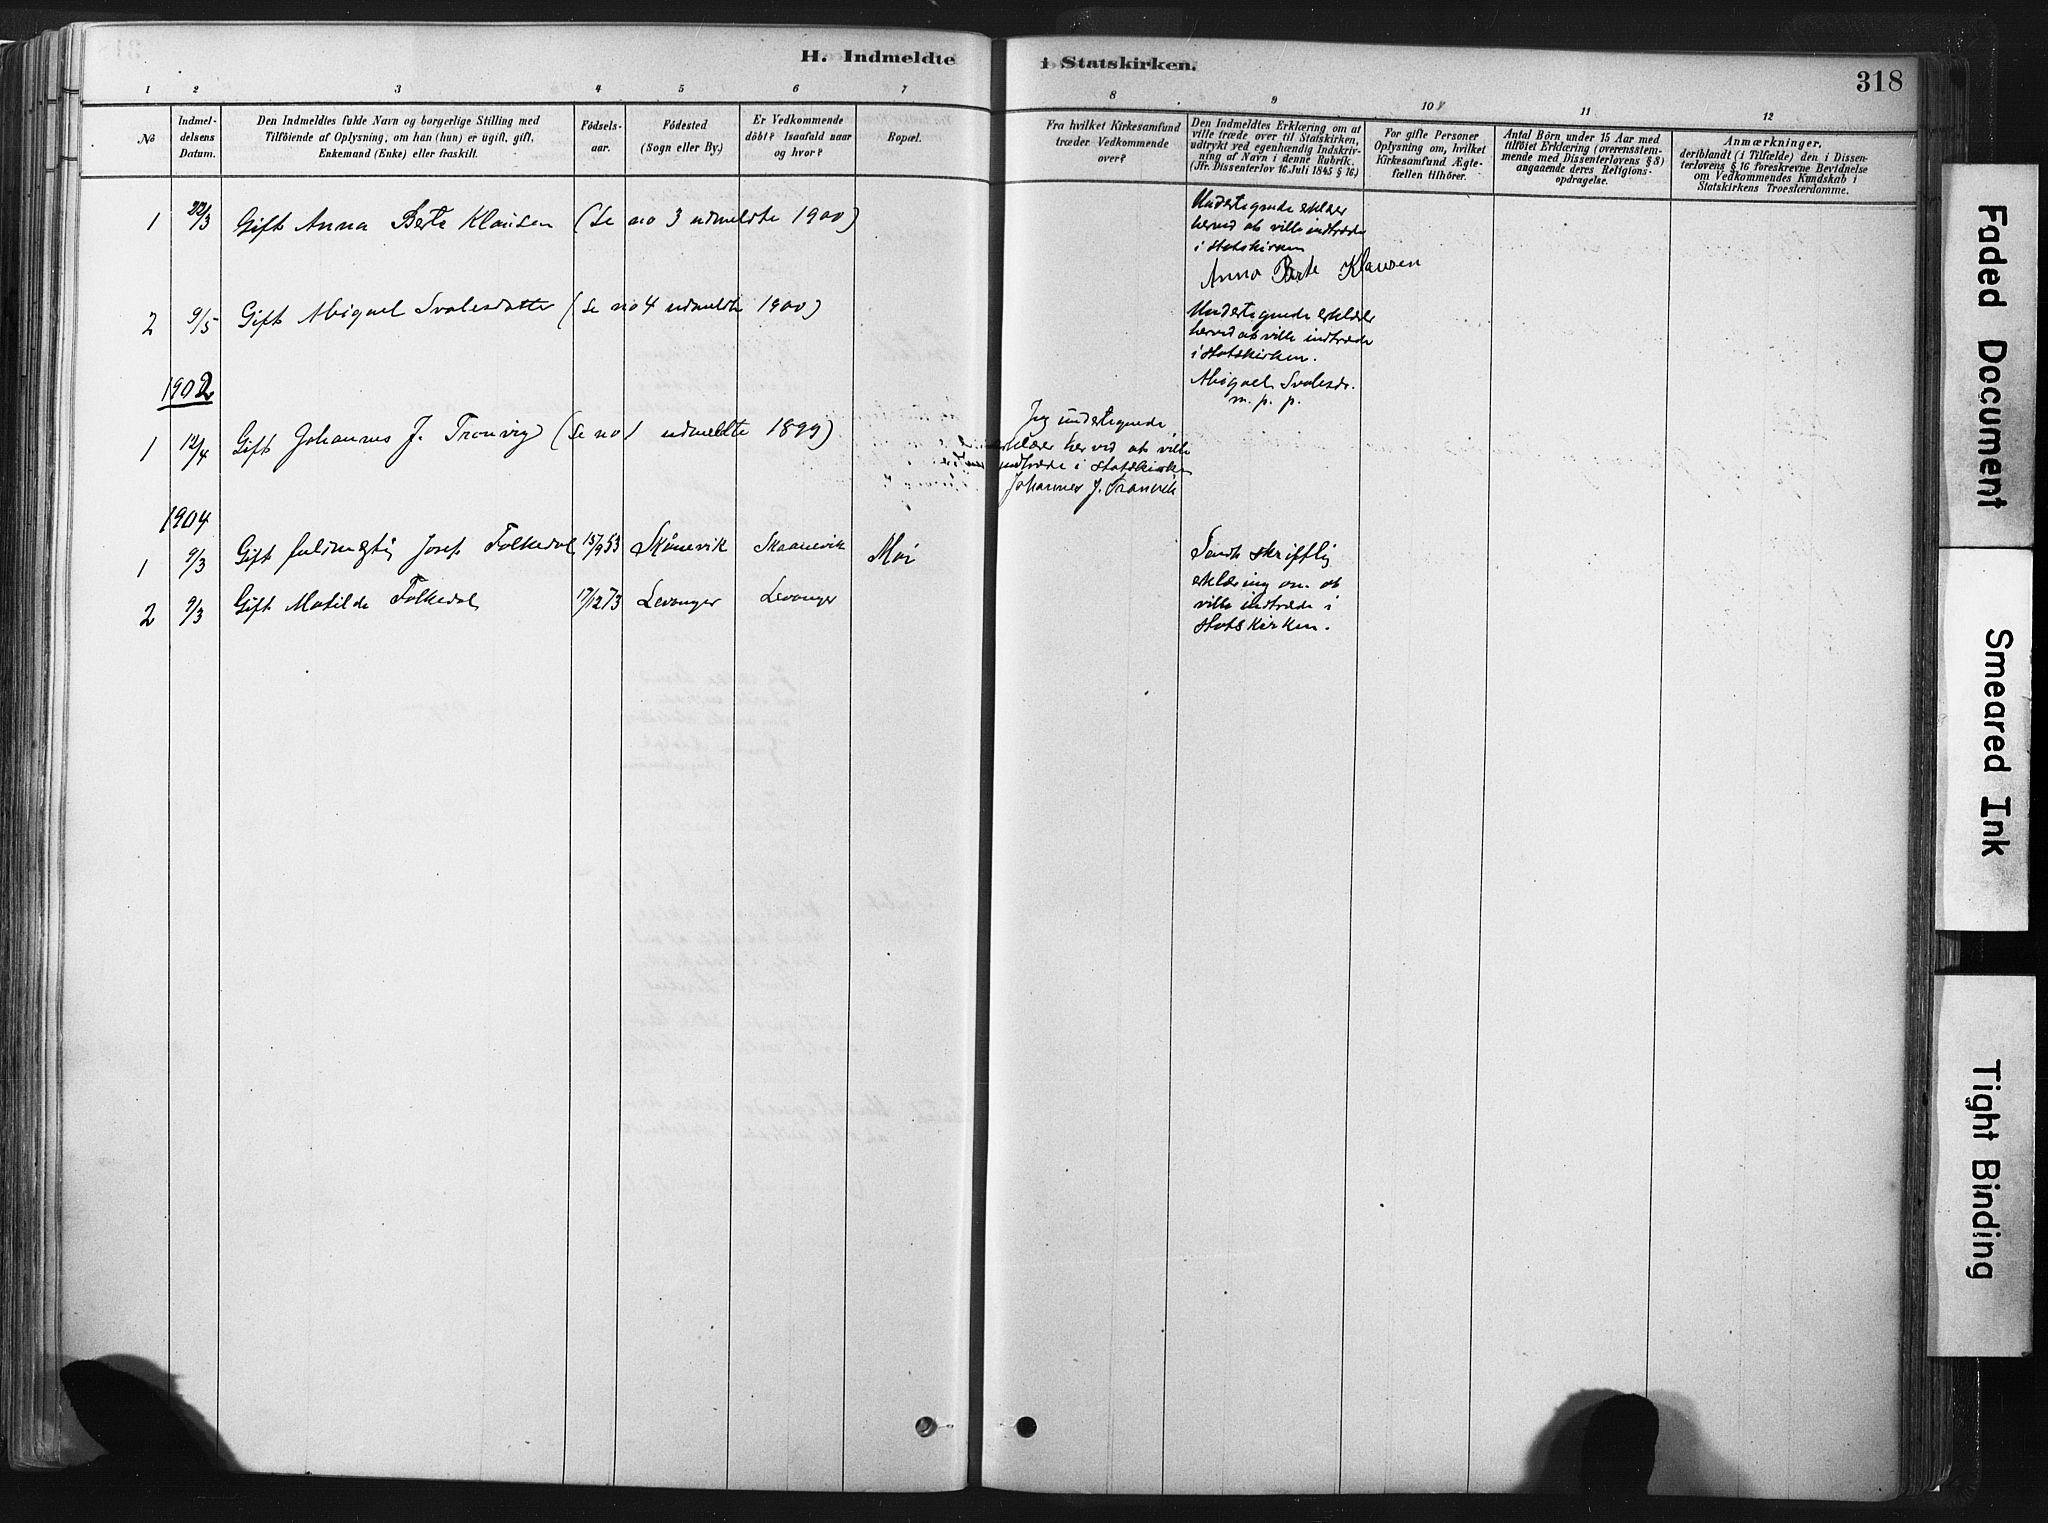 H. Indmeldte i Statskirken.
318
1 2 3 4 5 6 7 8 9 10 11 12
No
Indmel-
delsens
Datum.
Den Indmeldtes fulde Navn og borgerlige Stilling med
Tilföiende af Oplysning, om han (hun) er ugift, gift,
Enkemand (Enke) eller fraskilt.
Födsels-
aar.
Födested
(Sogn eller By.)
Er Vedkommende
döbt? Isaafald naar
og hvor?
Bopæl.
Fra hvilket Kirkesamfund
træder Vedkommende
over?
Den Indmeldtes Erklæring om at
ville træde over til Statskirken,
udtrykt ved egenhændig Indskriv-
ning af Navn i denne Rubrik.
(Jfr. Dissenterlov 16. Juli 1845 § 16.)
For gifte Personer
Oplysning om, hvilket
Kirkesamfund Ægte-
fællen tilhörer.
Antal Börn under 15 Aar med
tilföiet Erklæring (overensstem-
mende med Dissenterlovens § 8)
angaaende deres Religions-
opdragelse.
Anmærkninger,
deriblandt (i Tilfælde) den i Dissen-
terlovens § 16 foreskrevne Bevidnelse
om Vedkommendes Kundskab i
Statskirkens Troeslærdomme.
1 22/3 Gift Anna Berte Klausen (Se no 3 udmeldte 1900)
Undertegnede erklær
herved at ville indtræde
i statskirken
Anna Berte Klausen
2 9/5 Gift Abigael Svalesdatter (Se no 4 udmeldte 1900)
Undertegnede erklærer
herved at ville indtræde
i statskirken.
Abigael Svalesdr.
m. p. p.
1902
1 12/4 Gift Johannes J. Tronvig (Se no 1 udmeldte 1899)
Jeg undertegnede
erklærer herved at ville
indtræde i statskirken
Johannes J. Tronvik
1904
1 9/3 Gift Josef Folkedal 15/9 53 Skånevik Skaanevik Moi
2 9/3 Gift Matilde Folkedal 17/12 73 Levanger Levanger
Sendt skriftlig
erklæring om at
ville indtræde i
statskirken.
Faded Document
Smeared Ink
Tight Binding